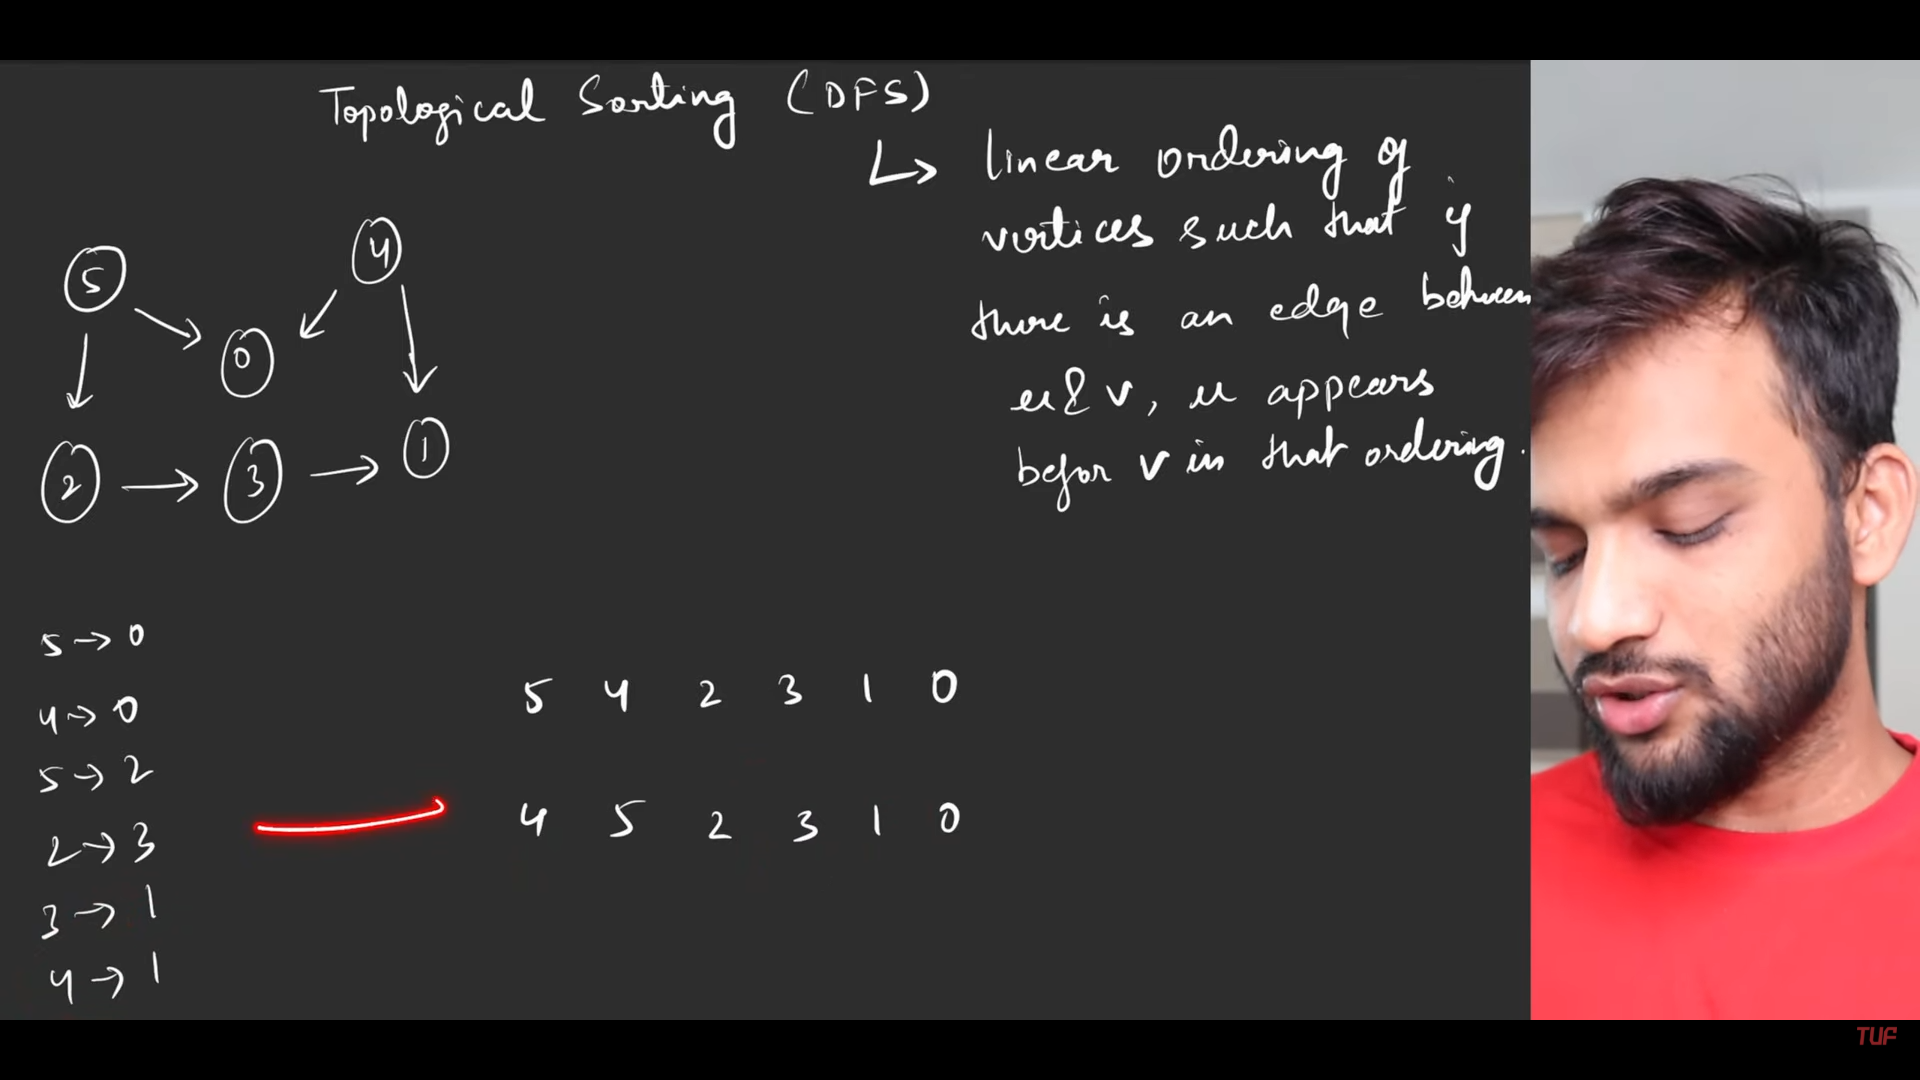 Topological Sorting (DFS)
↳ linear ordering of
vertices such that if
there is an edge between
u & v, u appears
befor v in that ordering.
5 4
0
2 → 3 → 1
5 → 0
4 → 0
5 → 2
2 → 3
3 → 1
4 → 1
5 4 2 3 1 0
4 5 2 3 1 0
TUF